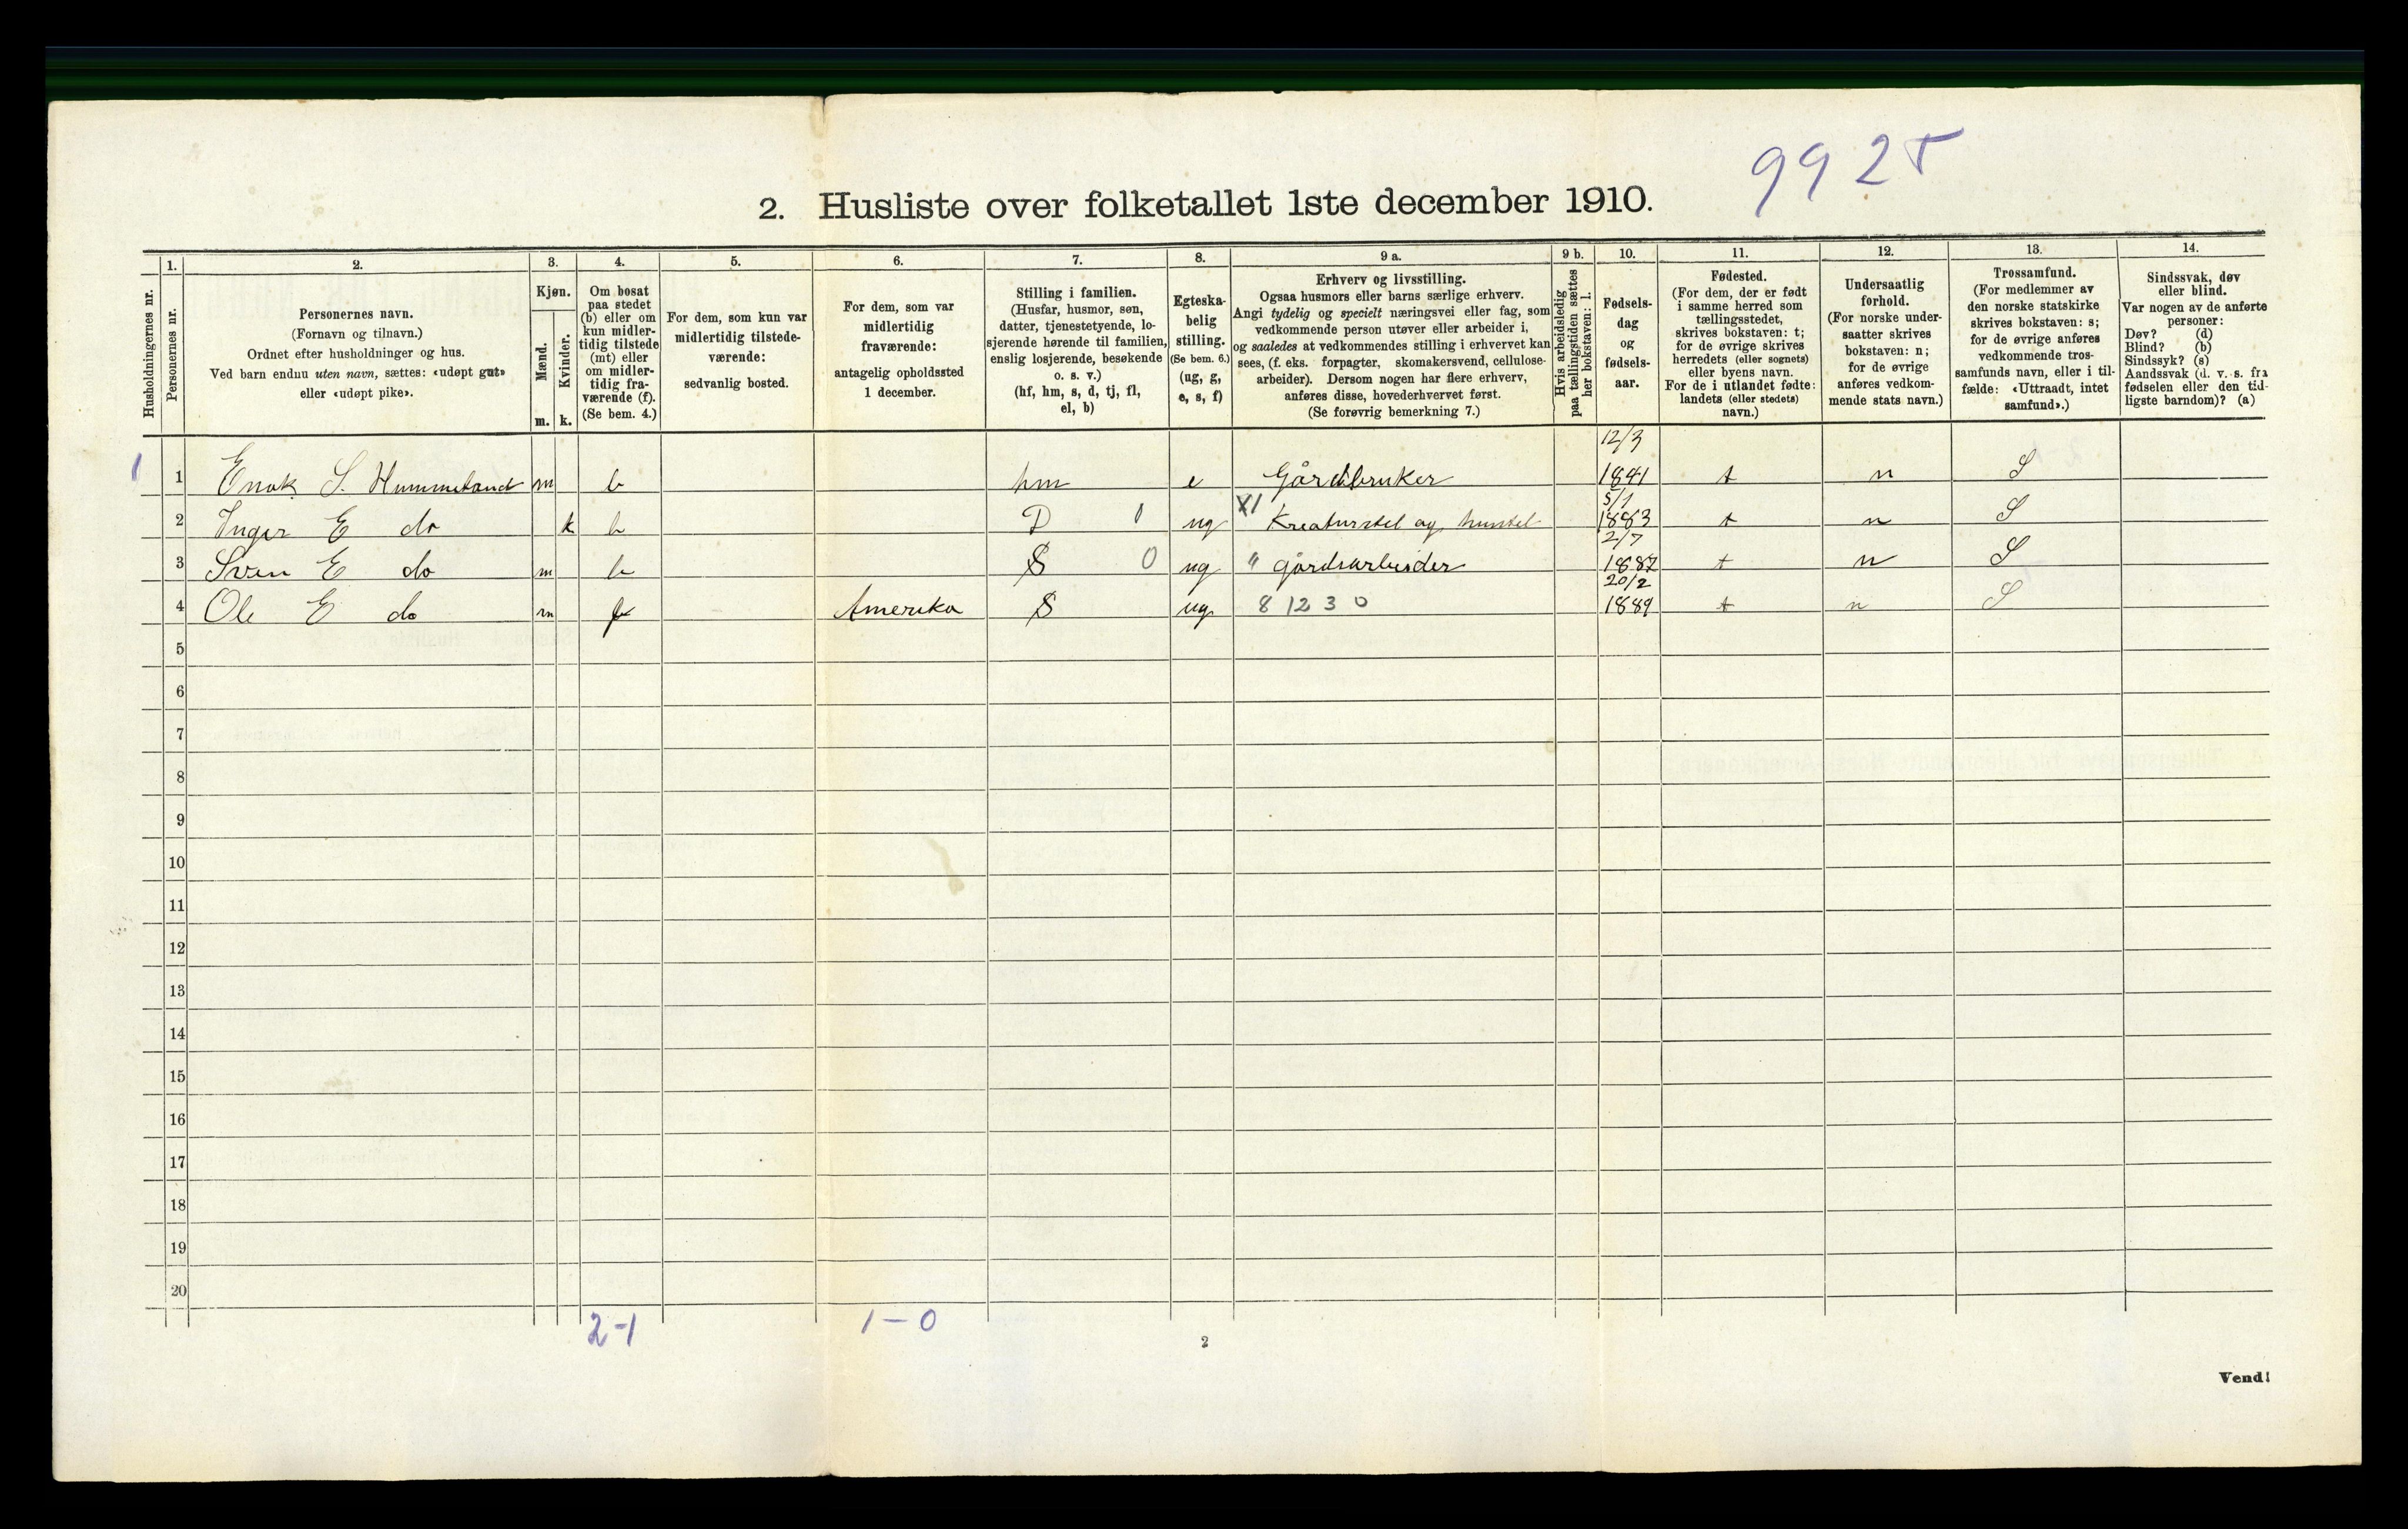 9925
2. Husliste over folketallet 1ste december 1910.
Husholdningernes nr.
1.
Personernes nr.
2.
Personernes navn.
(Fornavn og tilnavn.)
Ordnet efter husholdninger og hus.
Ved barn enduu uten navn, sættes: «udøpt gut»
eller «udøpt pike».
3.
Kjøn.
Mænd.
m.
Kvinder.
k.
4.
Om bosat
paa stedet
(b) eller om
kun midler-
tidig tilstede
(mt) eller
om midler-
tidig fra-
værende (f).
(Se bem. 4.)
5.
For dem, som kun var
midlertidig tilstede-
værende:
sedvanlig bosted.
6.
For dem, som var
midlertidig
fraværende:
antagelig opholdssted
1 december.
7.
Stilling i familien.
(Husfar, husmor, søn,
datter, tjenestetyende, lo-
sjerende hørende til familien,
enslig losjerende, besøkende
o. s. v.)
(hf, hm, s, d, tj, fl,
el, b)
8.
Egteska-
belig
stilling.
(Se bem. 6.)
(ug, g,
e, s, f)
9 a.
Erhverv og livsstilling.
Ogsaa husmors eller barns særlige erhverv.
Angi tydelig og specielt næringsvei eller fag, som
vedkommende person utøver eller arbeider i,
og saaledes at vedkommendes stilling i erhvervet kan
sees, (f. eks. forpagter, skomakersvend, cellulose-
arbeider). Dersom nogen har flere erhverv,
anføres disse, hovederhvervet først.
(Se forøvrig bemerkning 7.)
9 b.
Hvis arbeidsledig
paa tællingstiden sættes
her bokstaven: l.
10.
Fødsels-
dag
og
fødsels-
aar.
11.
Fødested.
(For dem, der er født
i samme herred som
tællingsstedet,
skrives bokstaven: t;
for de øvrige skrives
herredets (eller sognets)
eller byens navn.
For de i utlandet fødte:
landets (eller stedets)
navn.)
12.
Undersaatlig
forhold.
(For norske under-
saatter skrives
bokstaven: n;
for de øvrige
anføres vedkom-
mende stats navn.)
13.
Trossamfund.
(For medlemmer av
den norske statskirke
skrives bokstaven: s;
for de øvrige anføres
vedkommende tros-
samfunds navn, eller i til-
fælde: «Uttraadt, intet
samfund».)
14.
Sindssvak, døv
eller blind.
Var nogen av de anførte
personer:
Døv? (d)
Blind? (b)
Sindssyk? (s)
Aandssvak (d. v. s. fra
fødselen eller den tid-
ligste barndom)? (a)
12/3
1 1 Enok S. Hummeland m b hm e Gårdbruker 1841 t n S
5/1
2 Inger E do k b D 0 ug X1 Kreaturstel og husstel 1883 t n S
2/7
3 Sven E do m b S 0 ug " gårdsarbeider 1887 t n S
20/2
4 Ole E do m f Amerika S ug 8 12 3 0 1889 t n S
5
6
7
8
9
10
11
12
13
14
15
16
17
18
19
20
2-1 1-0
2
Vend!